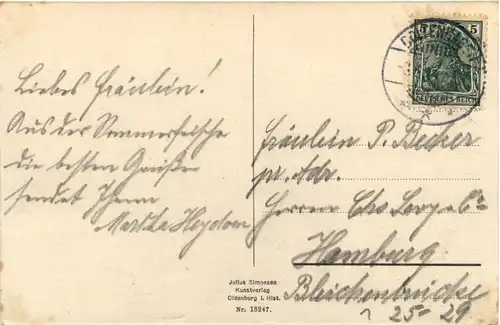 Liebes Fräulein!
Aus der Sommerfrische
die besten Grüße
sendet Ihnen
Martha Heydorn
5
DEUTSCHES REICH
Fräulein P. Becker
pr. Adr.
Herrn Chs Levy & Co
Hamburg
Bleichenbrücke
25-29
Julius Simonsen
Kunstverlag
Oldenburg i. Hlst.
Nr. 15247.